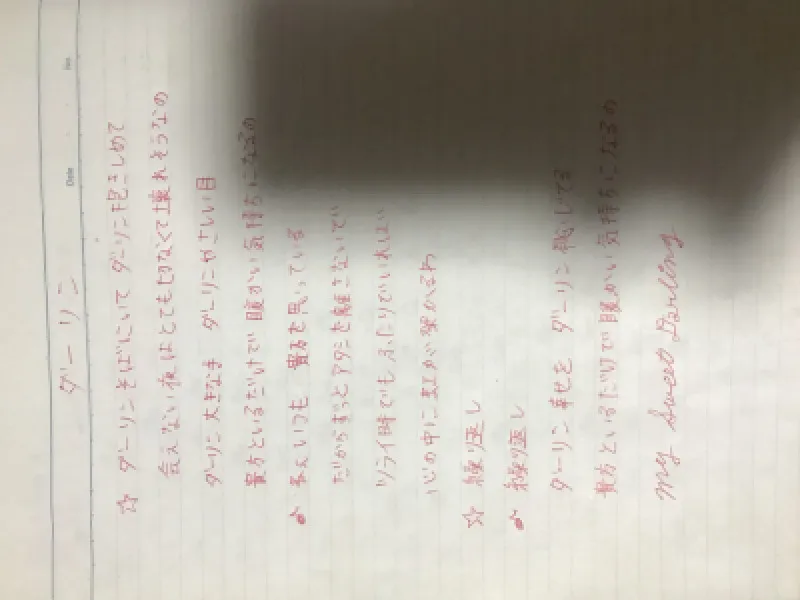 No.
Date
ダーリン
☆ ダーリンそばにいて ダーリン抱きしめて
会えない夜はとても切なくて壊れそうなの
ダーリン大きな手 ダーリンやさしい目
貴方といるだけで 暖かい気持ちになるの
♪ ねえいつも 貴方を思っている
だからずっとアタシを離さないで
ツライ時でもふたりでいれば
心の中に虹が架かるわ
☆ 繰り返し
♪ 繰り返し
ダーリン幸せを ダーリン感じてる
貴方といるだけで暖かい気持ちになるの
my Sweet Darling